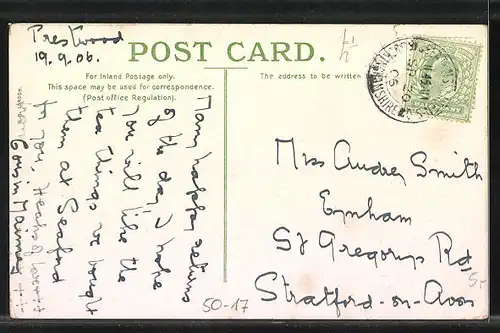 Prestwood
19.9.06.
POST CARD.
For Inland Postage only.
This space may be used for correspondence.
(Post office Regulation).
The address to be written
Many happy returns
of the day, I hope
you will like the
tea things we bought
them at Seaford
for you,
Cousin
Miss Audrey Smith
Eynham
St Gregorys Rd
Stratford-on-Avon
50-17
5-